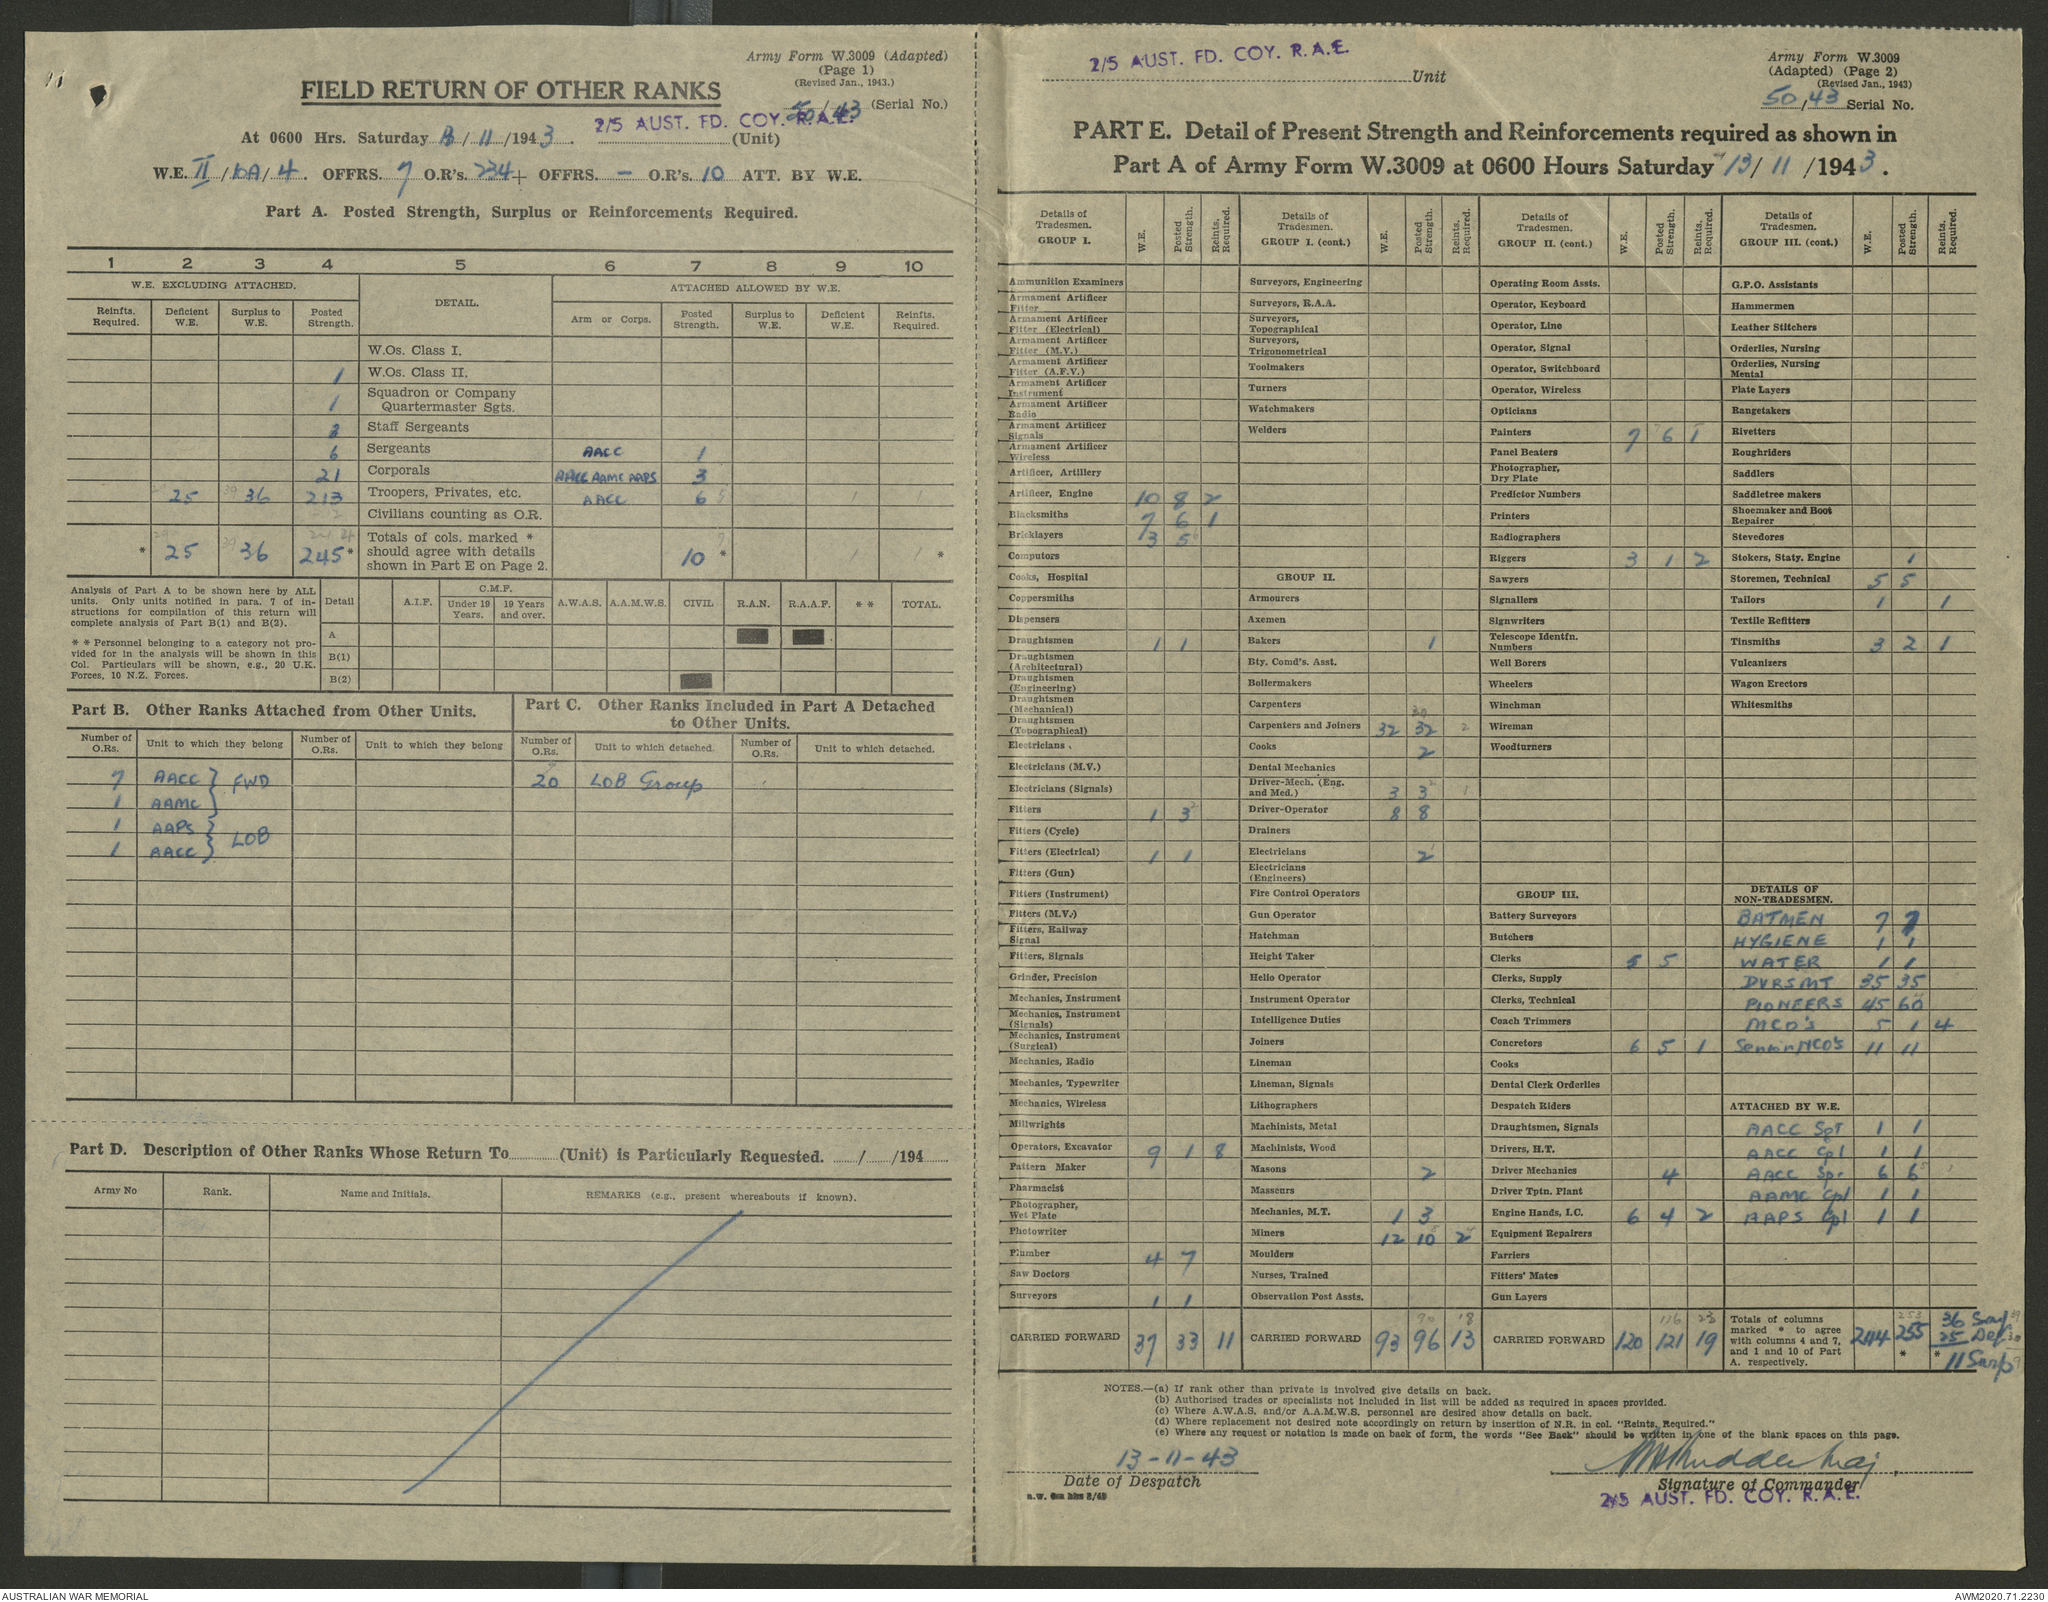 Army Form W.3009 (Adapted)
(Page 1)
(Revised Jan., 1943.)
FIELD RETURN OF OTHER RANKS
50/43 (Serial No.)
At 0600 Hrs. Saturday 13/11/1943. 2/5 AUST. FD. COY. R.A.E. (Unit)
W.E. II/10A/4. OFFRS. 7 O.R's. 234 + OFFRS. - O.R's. 10 ATT. BY W.E.
Part A. Posted Strength, Surplus or Reinforcements Required.
1 2 3 4 5 6 7 8 9 10
W.E. EXCLUDING ATTACHED. DETAIL. ATTACHED ALLOWED BY W.E.
Reinfts. Required. Deficient W.E. Surplus to W.E. Posted Strength. Arm or Corps. Posted Strength. Surplus to W.E. Deficient W.E. Reinfts. Required.
W.Os. Class I.
1 W.Os. Class II.
1 Squadron or Company Quartermaster Sgts.
3 Staff Sergeants
6 Sergeants AACC 1
21 Corporals AACC AAMC AAPS 3
25 36 213 Troopers, Privates, etc. AACC 6
Civilians counting as O.R.
* 25 36 245* Totals of cols. marked * should agree with details shown in Part E on Page 2. 10 * *
Analysis of Part A to be shown here by ALL
units. Only units notified in para. 7 of in-
structions for compilation of this return will
complete analysis of Part B(1) and B(2).
* * Personnel belonging to a category not pro-
vided for in the analysis will be shown in this
Col. Particulars will be shown, e.g., 20 U.K.
Forces, 10 N.Z. Forces.
Detail A.I.F. C.M.F. Under 19 Years. 19 Years and over. A.W.A.S. A.A.M.W.S. CIVIL R.A.N. R.A.A.F. * * TOTAL.
A
B(1)
B(2)
Part B. Other Ranks Attached from Other Units.
Part C. Other Ranks Included in Part A Detached
to Other Units.
Number of O.Rs. Unit to which they belong Number of O.Rs. Unit to which they belong Number of O.Rs. Unit to which detached. Number of O.Rs. Unit to which detached.
7 AACC } FWD 20 LOB Group
1 AAMC
1 AAPS } LOB
1 AACC
Part D. Description of Other Ranks Whose Return To (Unit) is Particularly Requested. / /194
Army No Rank. Name and Initials. REMARKS (e.g., present whereabouts if known).
2/5 AUST. FD. COY. R.A.E. Unit
Army Form W.3009
(Adapted) (Page 2)
(Revised Jan., 1943)
50/43 Serial No.
PART E. Detail of Present Strength and Reinforcements required as shown in
Part A of Army Form W.3009 at 0600 Hours Saturday 13/11/1943.
Details of Tradesmen. GROUP I. W.E. Posted Strength. Reints. Required.
Ammunition Examiners
Armament Artificer Fitter
Armament Artificer Fitter (Electrical)
Armament Artificer Fitter (M.V.)
Armament Artificer Fitter (A.F.V.)
Armament Artificer Instrument
Armament Artificer Radio
Armament Artificer Signals
Armament Artificer Wireless
Artificer, Artillery
Artificer, Engine 10 8 2
Blacksmiths 7 6 1
Bricklayers 3 5
Computors
Cooks, Hospital
Coppersmiths
Dispensers
Draughtsmen 1 1
Draughtsmen (Architectural)
Draughtsmen (Engineering)
Draughtsmen (Mechanical)
Draughtsmen (Topographical)
Electricians
Electricians (M.V.)
Electricians (Signals)
Fitters 1 3
Fitters (Cycle)
Fitters (Electrical) 1 1
Fitters (Gun)
Fitters (Instrument)
Fitters (M.V.)
Fitters, Railway Signal
Fitters, Signals
Grinder, Precision
Mechanics, Instrument
Mechanics, Instrument (Signals)
Mechanics, Instrument (Surgical)
Mechanics, Radio
Mechanics, Typewriter
Mechanics, Wireless
Millwrights
Operators, Excavator 9 1 8
Pattern Maker
Pharmacist
Photographer, Wet Plate
Photowriter
Plumber 4 7
Saw Doctors
Surveyors 1 1
CARRIED FORWARD 37 33 11
Details of Tradesmen. GROUP I. (cont.) W.E. Posted Strength. Reints. Required.
Surveyors, Engineering
Surveyors, R.A.A.
Surveyors, Topographical
Surveyors, Trigonometrical
Toolmakers
Turners
Watchmakers
Welders
GROUP II.
Armourers
Axemen
Bakers 1
Bty. Comd's. Asst.
Boilermakers
Carpenters
Carpenters and Joiners 32 32 2
Cooks 2
Dental Mechanics
Driver-Mech. (Eng. and Med.) 3 3
Driver-Operator 8 8
Drainers
Electricians 2
Electricians (Engineers)
Fire Control Operators
Gun Operator
Hatchman
Height Taker
Helio Operator
Instrument Operator
Intelligence Duties
Joiners
Lineman
Lineman, Signals
Lithographers
Machinists, Metal
Machinists, Wood
Masons 2
Masseurs
Mechanics, M.T. 1 3
Miners 12 10 2
Moulders
Nurses, Trained
Observation Post Assts.
CARRIED FORWARD 93 96 13
Details of Tradesmen. GROUP II. (cont.) W.E. Posted Strength. Reints. Required.
Operating Room Assts.
Operator, Keyboard
Operator, Line
Operator, Signal
Operator, Switchboard
Operator, Wireless
Opticians
Painters 7 6 1
Panel Beaters
Photographer, Dry Plate
Predictor Numbers
Printers
Radiographers
Riggers 3 1 2
Sawyers
Signallers
Signwriters
Telescope Identfn. Numbers
Well Borers
Wheelers
Winchman
Wireman
Woodturners
GROUP III.
Battery Surveyors
Butchers
Clerks 5 5
Clerks, Supply
Clerks, Technical
Coach Trimmers
Concretors 6 5 1
Cooks
Dental Clerk Orderlies
Despatch Riders
Draughtsmen, Signals
Drivers, H.T.
Driver Mechanics 4
Driver Tptn. Plant
Engine Hands, I.C. 6 4 2
Equipment Repairers
Farriers
Fitters' Mates
Gun Layers
CARRIED FORWARD 120 121 19
Details of Tradesmen. GROUP III. (cont.) W.E. Posted Strength. Reints. Required.
G.P.O. Assistants
Hammermen
Leather Stitchers
Orderlies, Nursing
Orderlies, Nursing Mental
Plate Layers
Rangetakers
Rivetters
Roughriders
Saddlers
Saddletree makers
Shoemaker and Boot Repairer
Stevedores
Stokers, Staty. Engine 1
Storemen, Technical 5 5
Tailors 1 1
Textile Refitters
Tinsmiths 3 2 1
Vulcanizers
Wagon Erectors
Whitesmiths
DETAILS OF NON-TRADESMEN.
BATMEN 7 7
HYGIENE 1 1
WATER 1 1
DVRS MT 35 35
PIONEERS 45 60
MCD's 5 1 4
Senior NCO's 11 11
ATTACHED BY W.E.
AACC Sgt 1 1
AACC Cpl 1 1
AACC Spr 6 6
AAMC Cpl 1 1
AAPS Cpl 1 1
Totals of columns marked * to agree with columns 4 and 7, and 1 and 10 of Part A. respectively. 244 255 * 36 Surp
25 Def
* 11 Surp
NOTES.—(a) If rank other than private is involved give details on back.
(b) Authorised trades or specialists not included in list will be added as required in spaces provided.
(c) Where A.W.A.S. and/or A.A.M.W.S. personnel are desired show details on back.
(d) Where replacement not desired note accordingly on return by insertion of N.R. in col. "Reints. Required."
(e) Where any request or notation is made on back of form, the words "See Back" should be written in one of the blank spaces on this page.
13-11-43
Date of Despatch
Maj
Signature of Commander
2/5 AUST. FD. COY. R.A.E.
AUSTRALIAN WAR MEMORIAL
AWM2020.71.2230